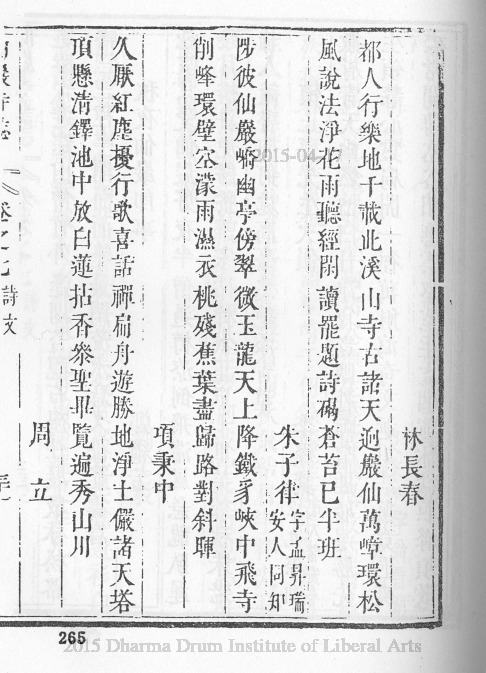 林長春
都人行樂地千載此溪山寺古諸天逈巖仙萬嶂環松
風說法淨花雨聽經閑讀罷題詩碣蒼苔已半班
朱子律
字孟昇瑞
安人同知
陟彼仙巖嶠幽亭傍翠微玉龍天上降鐵豸峽中飛寺
削峰環壁空濛雨濕衣桃殘蕉葉盡歸路對斜暉
項秉中
久厭紅塵擾行歌喜話禪扁舟遊勝地淨土儼諸天塔
頂懸清鐸池中放白蓮拈香叅聖畢覽遍秀山川
周立
卷之七詩文
265
2015 Dharma Drum Institute of Liberal Arts